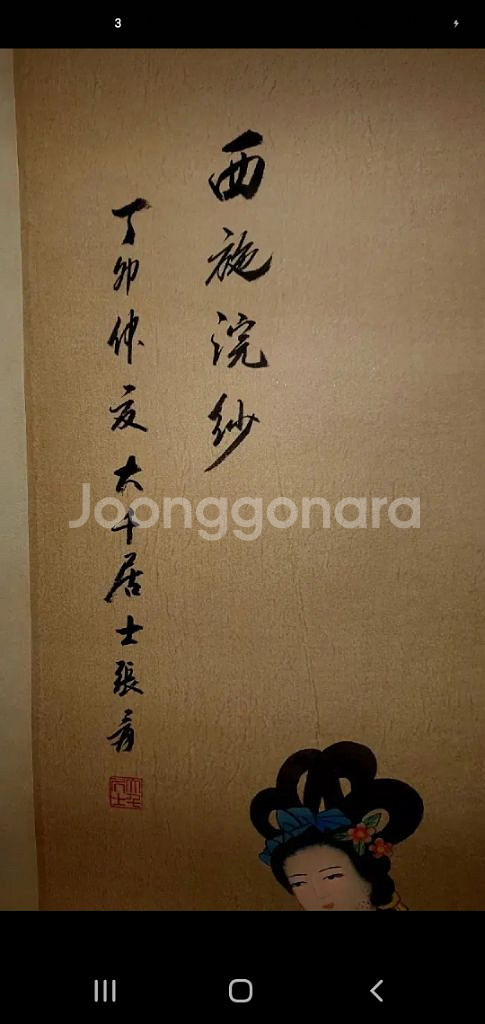 3
西施浣紗
丁卯仲夏大千居士張爰
Joonggonara